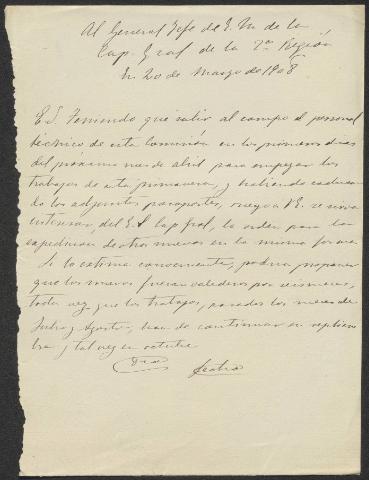 Al General Jefe de E. M. de la
Cap. Gral de la 2ª Región
En 20 de Marzo de 1908
E. S. Teniendo que salir al campo el personal
técnico de esta Comisión en los primeros dias
del próximo mes de abril para empezar los
trabajos de esta primavera, y habiendo caduca-
do los adjuntos pasaportes, ruego a V. E. se
interesar, del E. S. Cap Gral, la orden para la
expedición de otros nuevos en la misma forma.
Si lo estima conveniente, podria proponer
que los nuevos fueran valederos por seis meses,
toda vez que los trabajos, pasados los meses de
Julio y Agosto, han de continuar en septiem
bre y tal vez en octubre